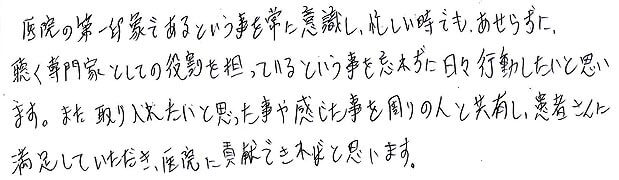 医院の第一印象であるという事を常に意識し、忙しい時でも、あせらずに、
聴く専門家としての役割を担っているという事を忘れずに日々行動したいと思い
ます。また取り入れたいと思った事や感じた事を周りの人と共有し、患者さんに
満足していただき、医院に貢献できればと思います。